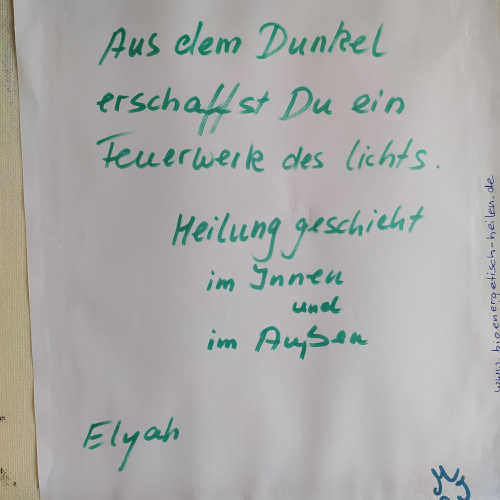 Aus dem Dunkel
erschaffst Du ein
Feuerwerk des lichts.
Heilung geschieht
im Innen
und
im Außen
Elyah
www.bioenergetisch-heilen.de